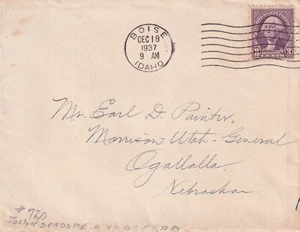 BOISE
DEC 18
1937
9 AM
IDAHO
Mr. Earl D. Painter,
Morrison Utah-General
Ogallalla
Nebraska
# 720
SENDS ME A